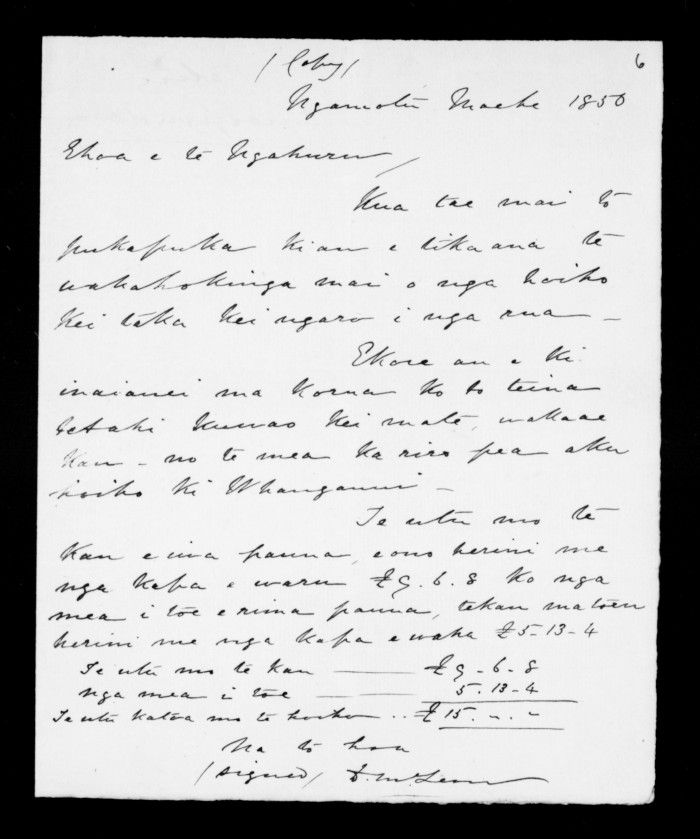 (Copy) 6
Ngamotu Maehe 1850
Ehoa e te Ngahuru
Kua tae mai to
pukapuka kiau e tikaana te
wakahokinga mai o nga hoiho
kei taka kei ngaro i nga rua –
Ekore au e ki
inaianei ma korua ko to teina
tetahi kuwao kei mate, wakaae
kau – no te mea ka riro pea aku
hoiho ki Whanganui –
Te utu mo te
kau e iwa pauna, eono herini me
nga kapa e waru £9.6.8 ko nga
mea i toe e rima pauna, tekau matoru
herini me nga kapa ewaha £5-13-4
Te utu mo te kau — £9-6-8
nga mea i toe — 5.13-4
Te utu katoa mo te hoiho .. £15.〃.〃
Na to hoa
(signed) D. McLean